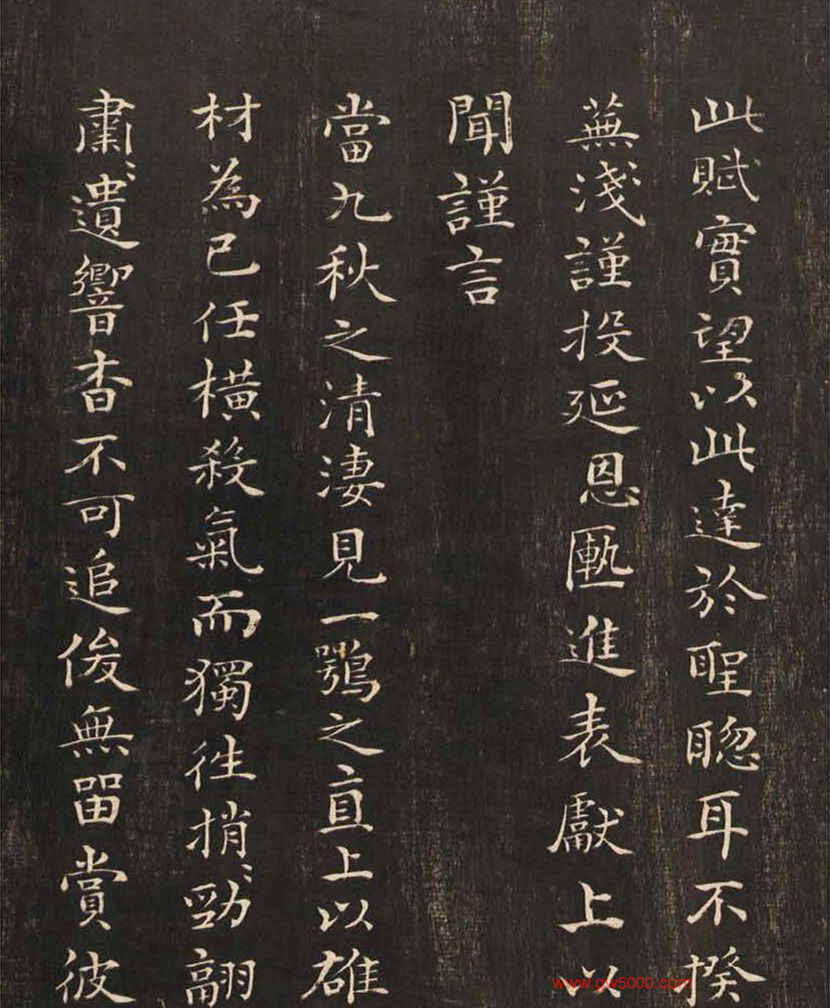 此賦實望以此達於聖聰耳不揆
蕪淺謹投延恩匭進表獻上以
聞謹言
當九秋之清淒見一鶚之直上以雄
材為己任橫殺氣而獨往捎〻勁翮
肅〻遺響杳不可追俊無留賞彼
www.gw5000.com